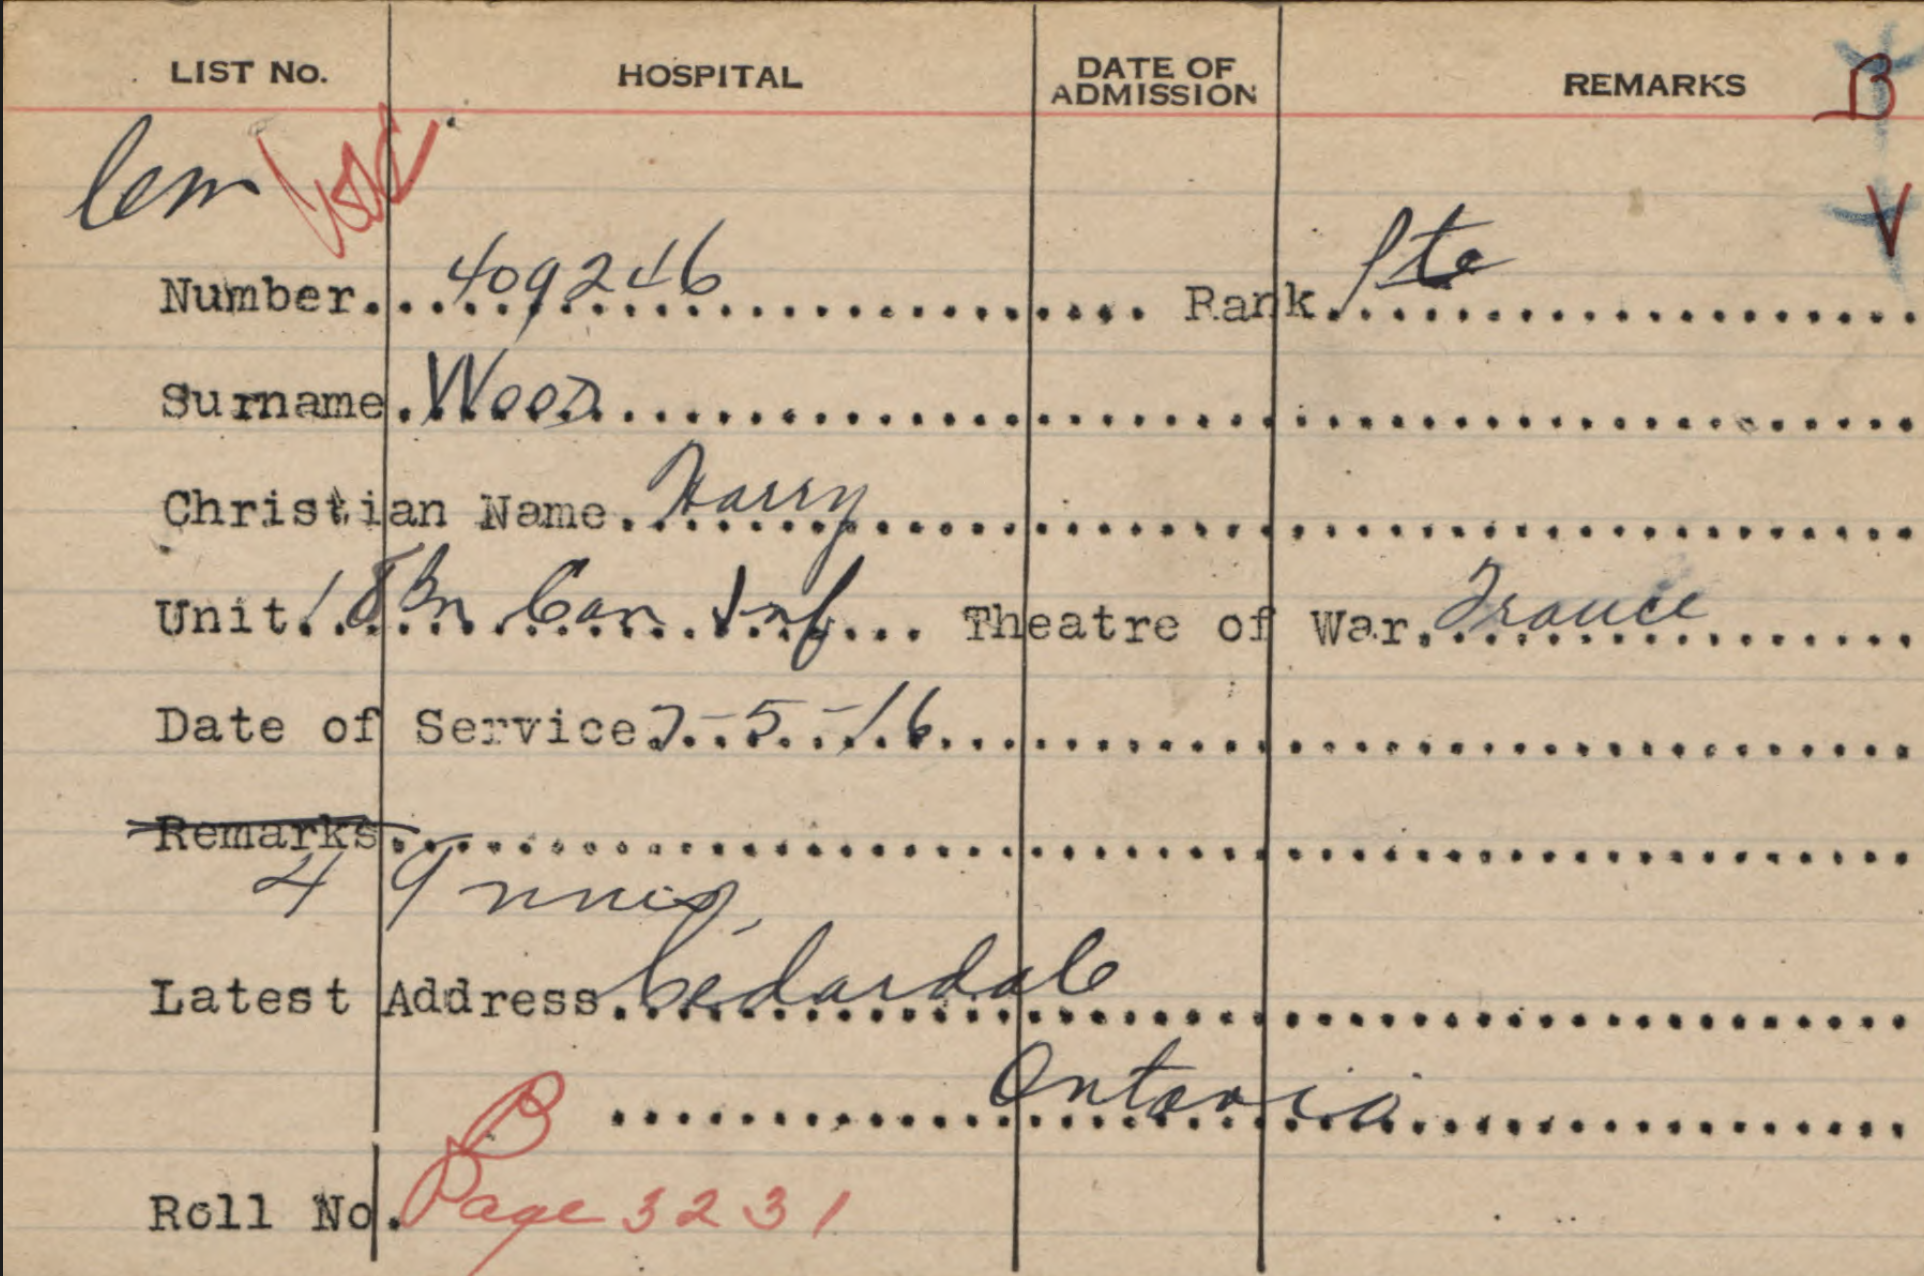 LIST No. HOSPITAL DATE OF ADMISSION REMARKS B
V
Number 409246 Rank Pte
Surname Wood
Christian Name Harry
Unit 18 Bn Can Inf Theatre of War France
Date of Service 7-5-16
Remarks
Latest Address Cedardale
Ontario
B
Roll No. Page 3231